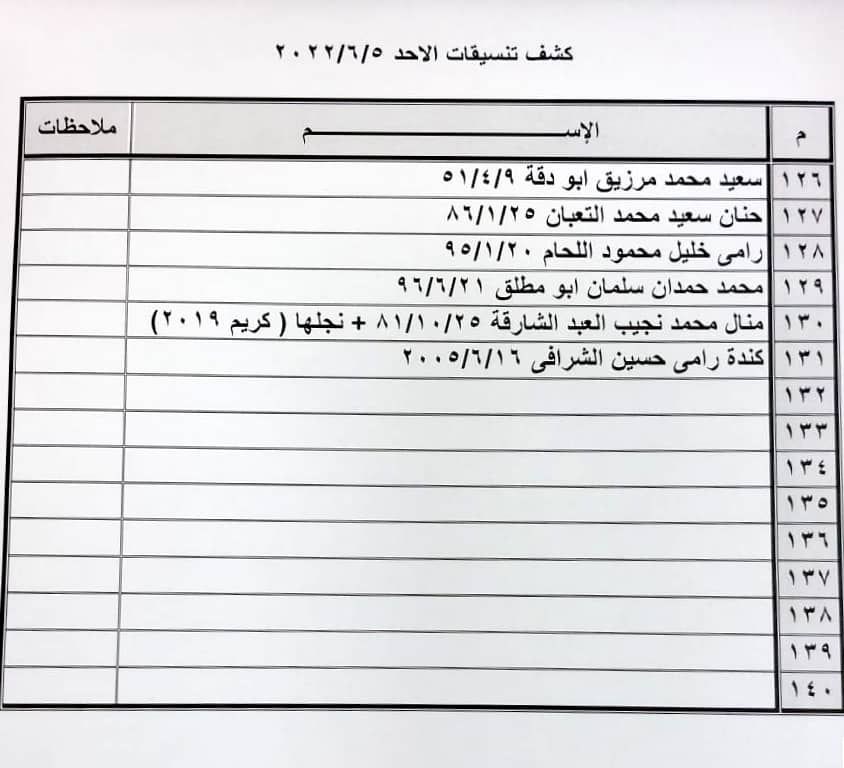 كشف تنسيقات الاحد ٢٠٢٢/٦/٥
م الإســـــــــــــــــــــم ملاحظات
١٢٦ سعيد محمد مرزيق ابو دقة ٥١/٤/٩
١٢٧ حنان سعيد محمد التعبان ٨٦/١/٢٥
١٢٨ رامى خليل محمود اللحام ٩٥/١/٢٠
١٢٩ محمد حمدان سلمان ابو مطلق ٩٦/٦/٢١
١٣٠ منال محمد نجيب العبد الشارقة ٨١/١٠/٢٥ + نجلها ( كريم ٢٠١٩)
١٣١ كندة رامى حسين الشرافى ٢٠٠٥/٦/١٦
١٣٢
١٣٣
١٣٤
١٣٥
١٣٦
١٣٧
١٣٨
١٣٩
١٤٠